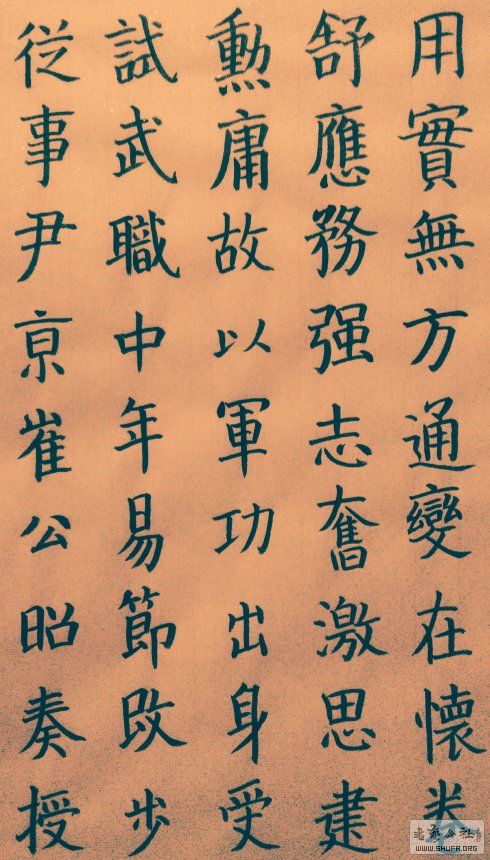 用實無方通變在懷卷
舒應務强志奮激思建
勲庸故以軍功出身受
試武職中年易節改步
従事尹亰崔公昭奏授
WWW.SHUFA.ORG